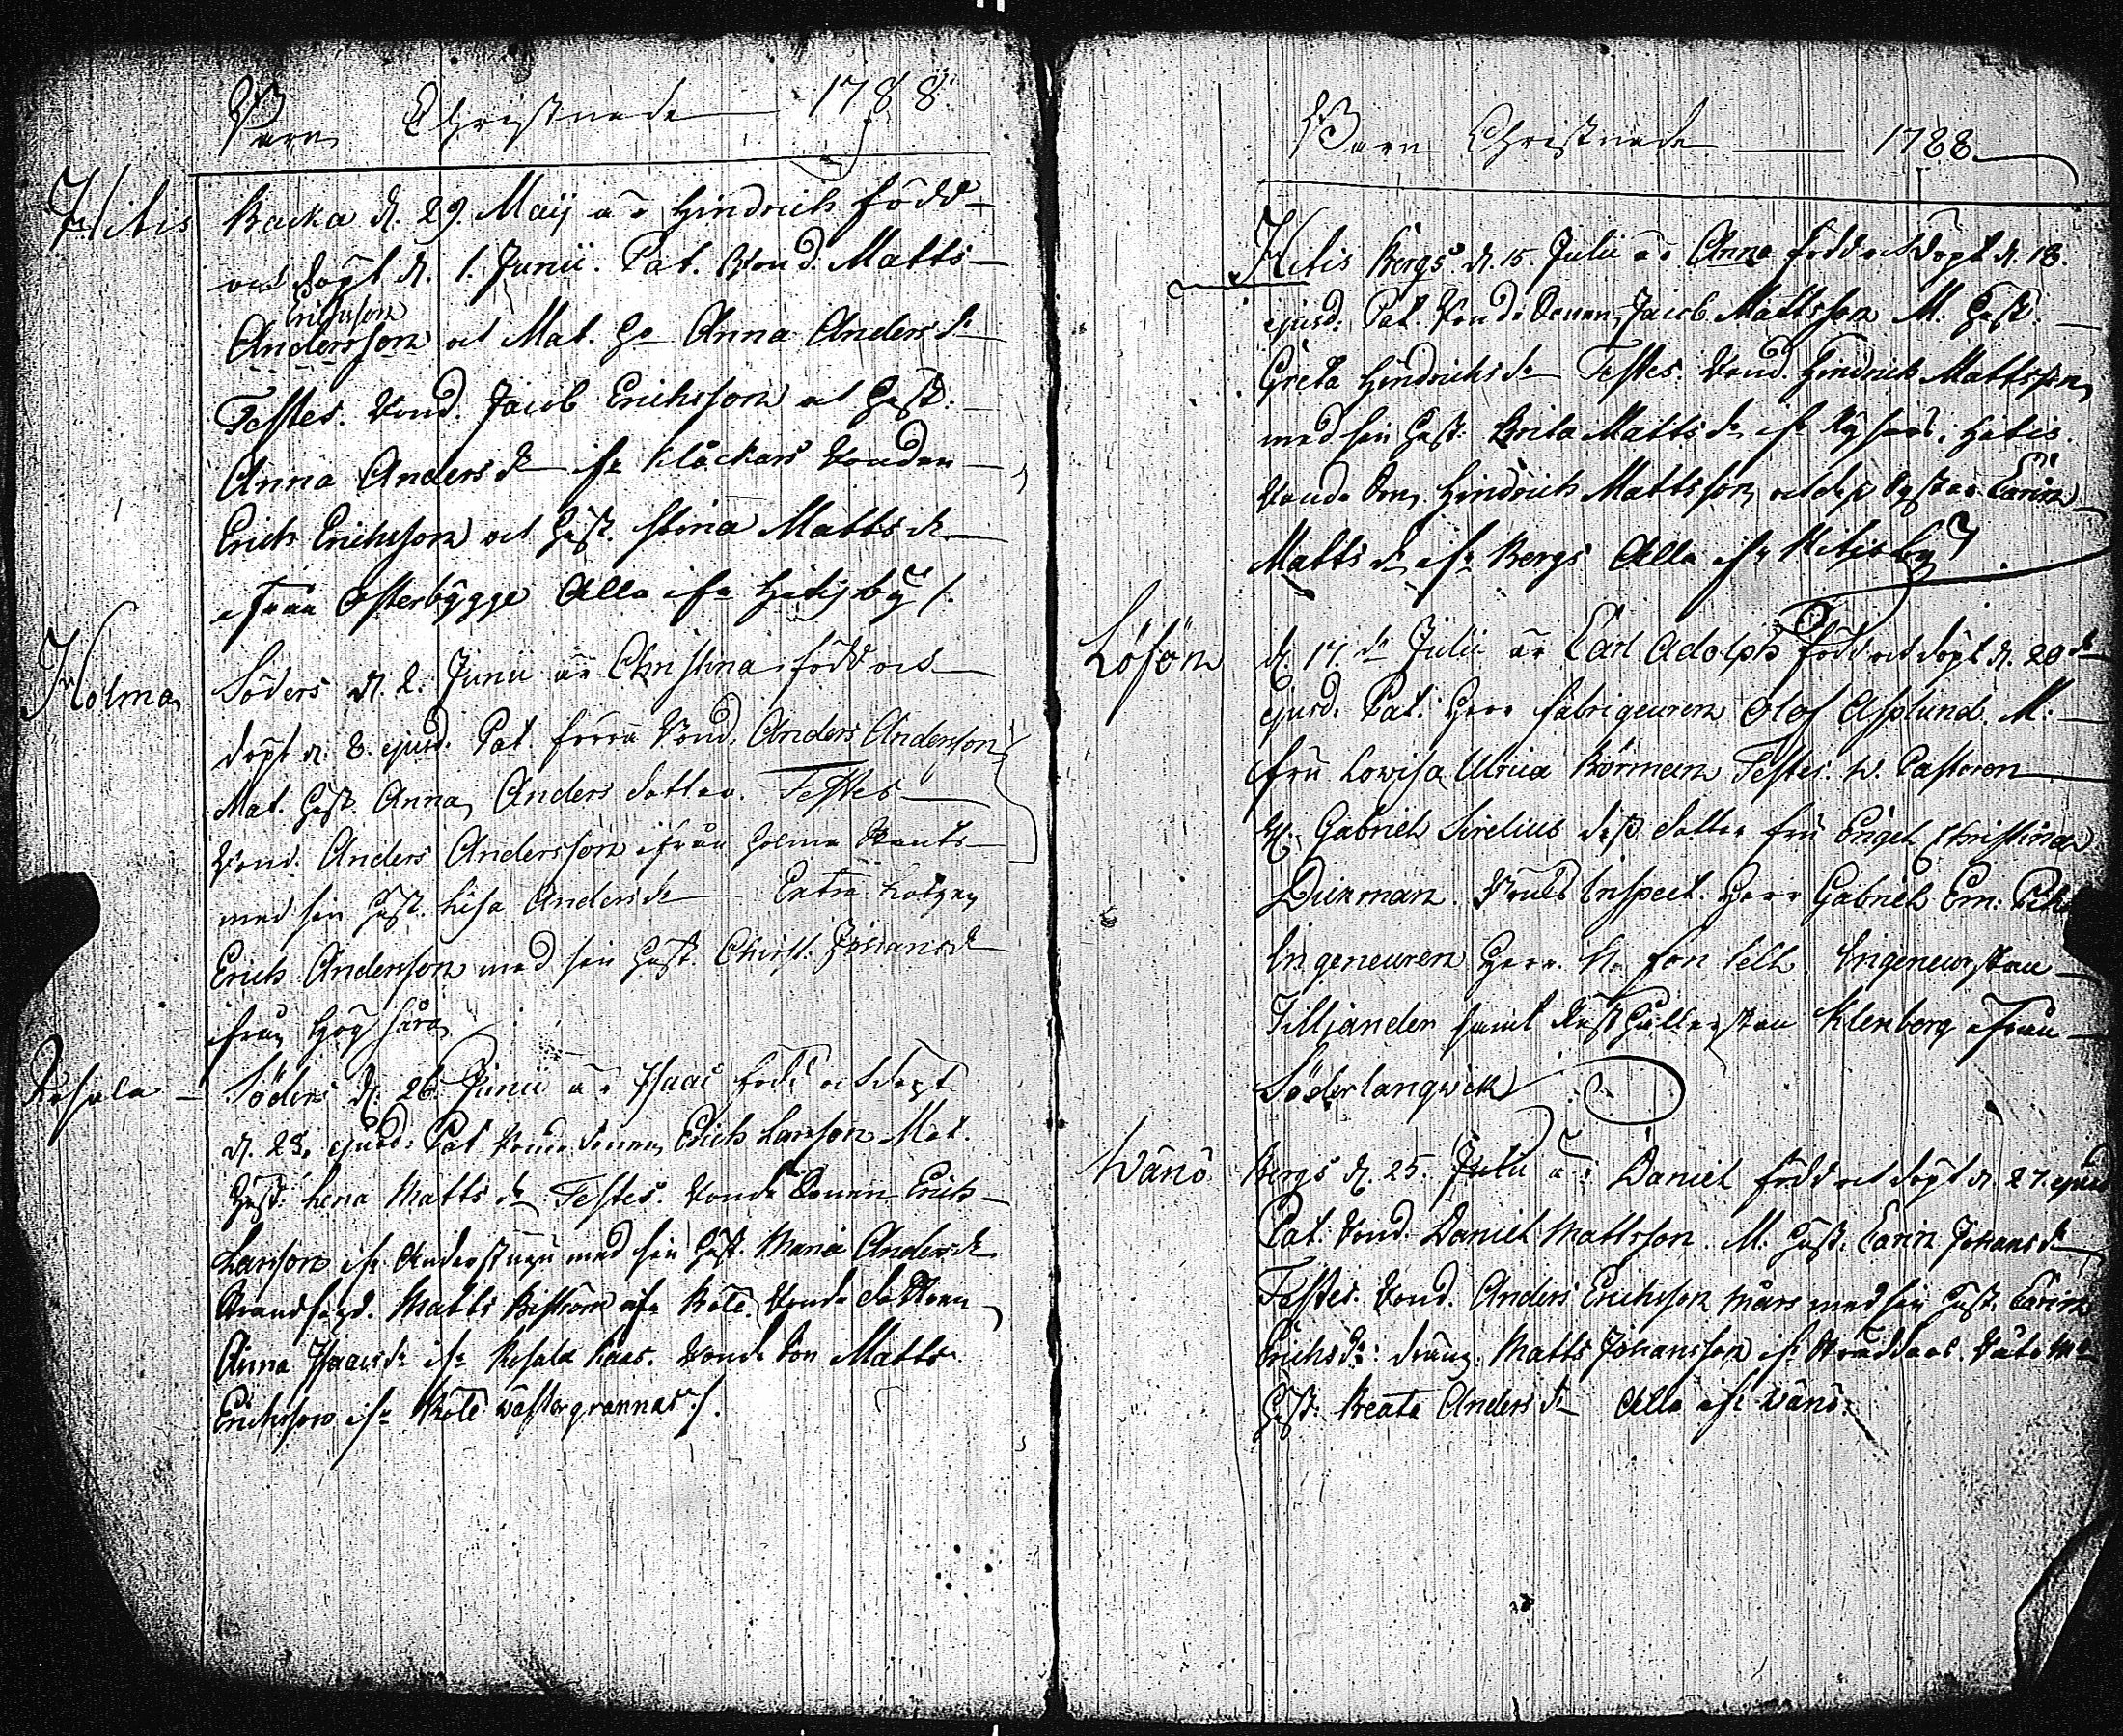 Barn Christnade 1788
Hitis Backa d. 29. Maij är Hindrich född
och döpt d. 1. Junii. Pat. Bond. Matts
Erichsson
Andersson och Mat. H. Anna Anders dr
Testes. Bond. Jacob Erichsson och Hust:
Anna Anders dr ifr Klåckars Bonden
Erich Erichsson och Hust. Stina Matts dr
ifrån Österbygge Alla ifr Hitis by /.
Holma Söders d. 2. Junii är Christina född och
döpt d. 8. ejusd. Pat. förra Bond. Anders Andersson
Mat. Hust. Anna Anders dotter. Testes
Bond. Anders Andersson ifrån Holma
med sin Hust. Lisa Anders dr
Erich Andersson med sin Hust. Christ. Johans dr
ifrån Högsåra
Rosala Söders d. 26. Junii är Isaac född och döpt
d. 28. ejusd: Pat. Bonde Sonen Erich Larsson Mat.
Hust: Lena Matts dr Testes. Bonde Sonen Erich
Larsson ifr med sin Hust. Maria Anders dr
Matts ifr Böle. Bonde dottren
Anna Isaacs dr ifr Rosala Bonde Son Matts
Erichsson ifr Böle wästergrannas /.
Barn Christnade 1788
Hitis Bergs d. 15 Julii är Anna född och döpt d. 18.
ejusd: Pat. Bonde Sonen Jacob Mattsson M. Hust:
Greta Hindrichs dr Testes. Bond. Hindrich Mattsson
med sin Hust: Brita Matts dr ifr i Hitis.
Bonde Son Hindrich Mattsson och dess Syster Carin
Matts dr ifr Bergs Alla ifr Hitis by
Löfön d. 17. de Julii är Carl Adolph född och döpt d. 20 de
ejusd: Pat: Herr Fabriqeuren Olof Asplund. M.
Fru Lowisa Ulrica Börman Testes: W. Pastoren
H. Gabriel Sirelius dess dotter Fru Engel Christina
Dickman. Bruks Inspect. Herr Gabriel Em.
Ingeneuren Herr. Ingeneurskan
Tilljander samt Klenborg ifrån
Söderlangwik
Wänö Bergs d. 25. Julii är Daniel född och döpt d. 27. ejusd
Pat. Bond. Daniel Mattsson. M. Hust: Carin Johans dr
Testes. Bond. Anders Erichsson Mårs med sin Hust. Carin
Erichs dr: dräng Matts Johansson ifr
Hust: Beata Anders dr Alla ifr Wänö.